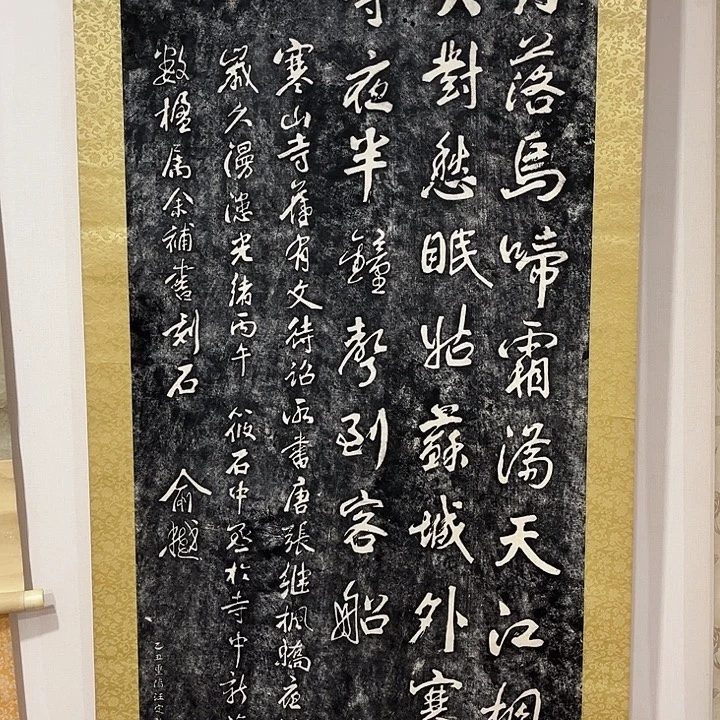 落烏啼霜滿天江楓
火對愁眠姑蘇城外寒
寺夜半鐘聲到客船
寒山寺舊有文待詔所書唐張繼楓橋夜
歲久漫漶光緒丙午 筱石中丞於寺中新
數楹属余補書刻石 俞樾
乙丑重